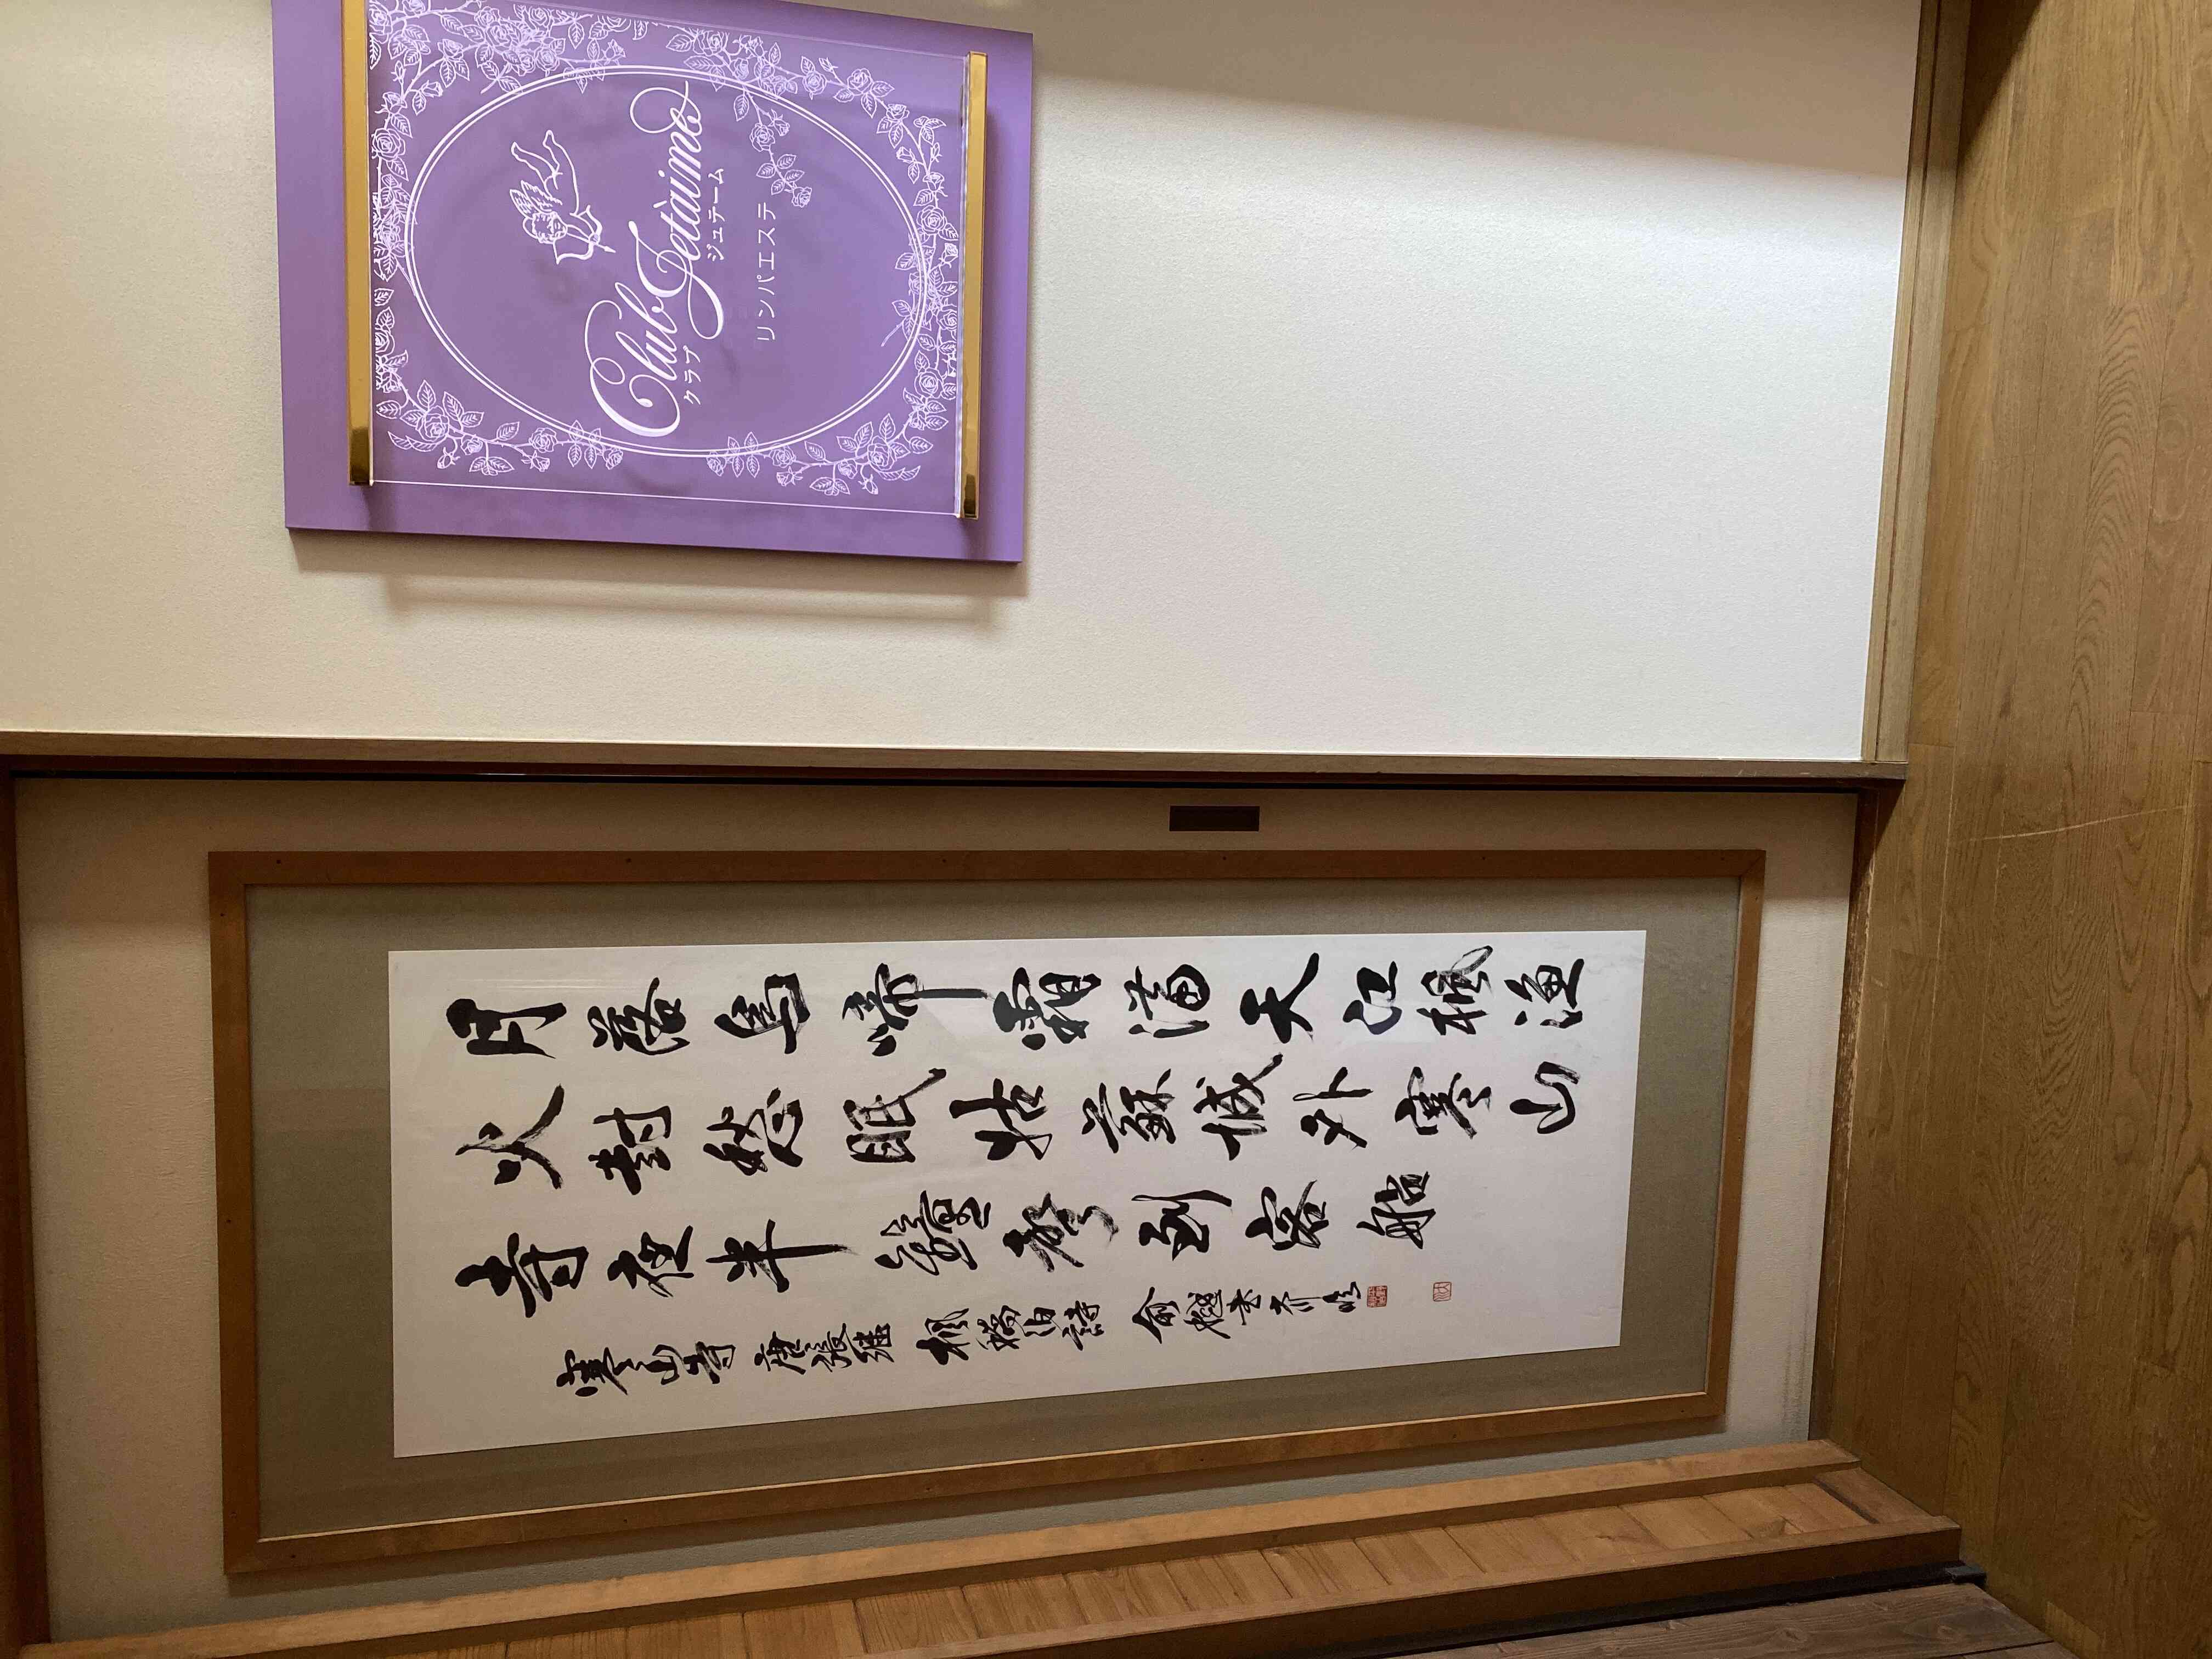 月落烏啼霜滿天江楓漁
火對愁眠姑蘇城外寒山
寺夜半鐘聲到客船
寒山寺 唐張繼 楓橋泊詩 俞樾書
Club Jetaime
クラブ ジュテーム
リンパエステ